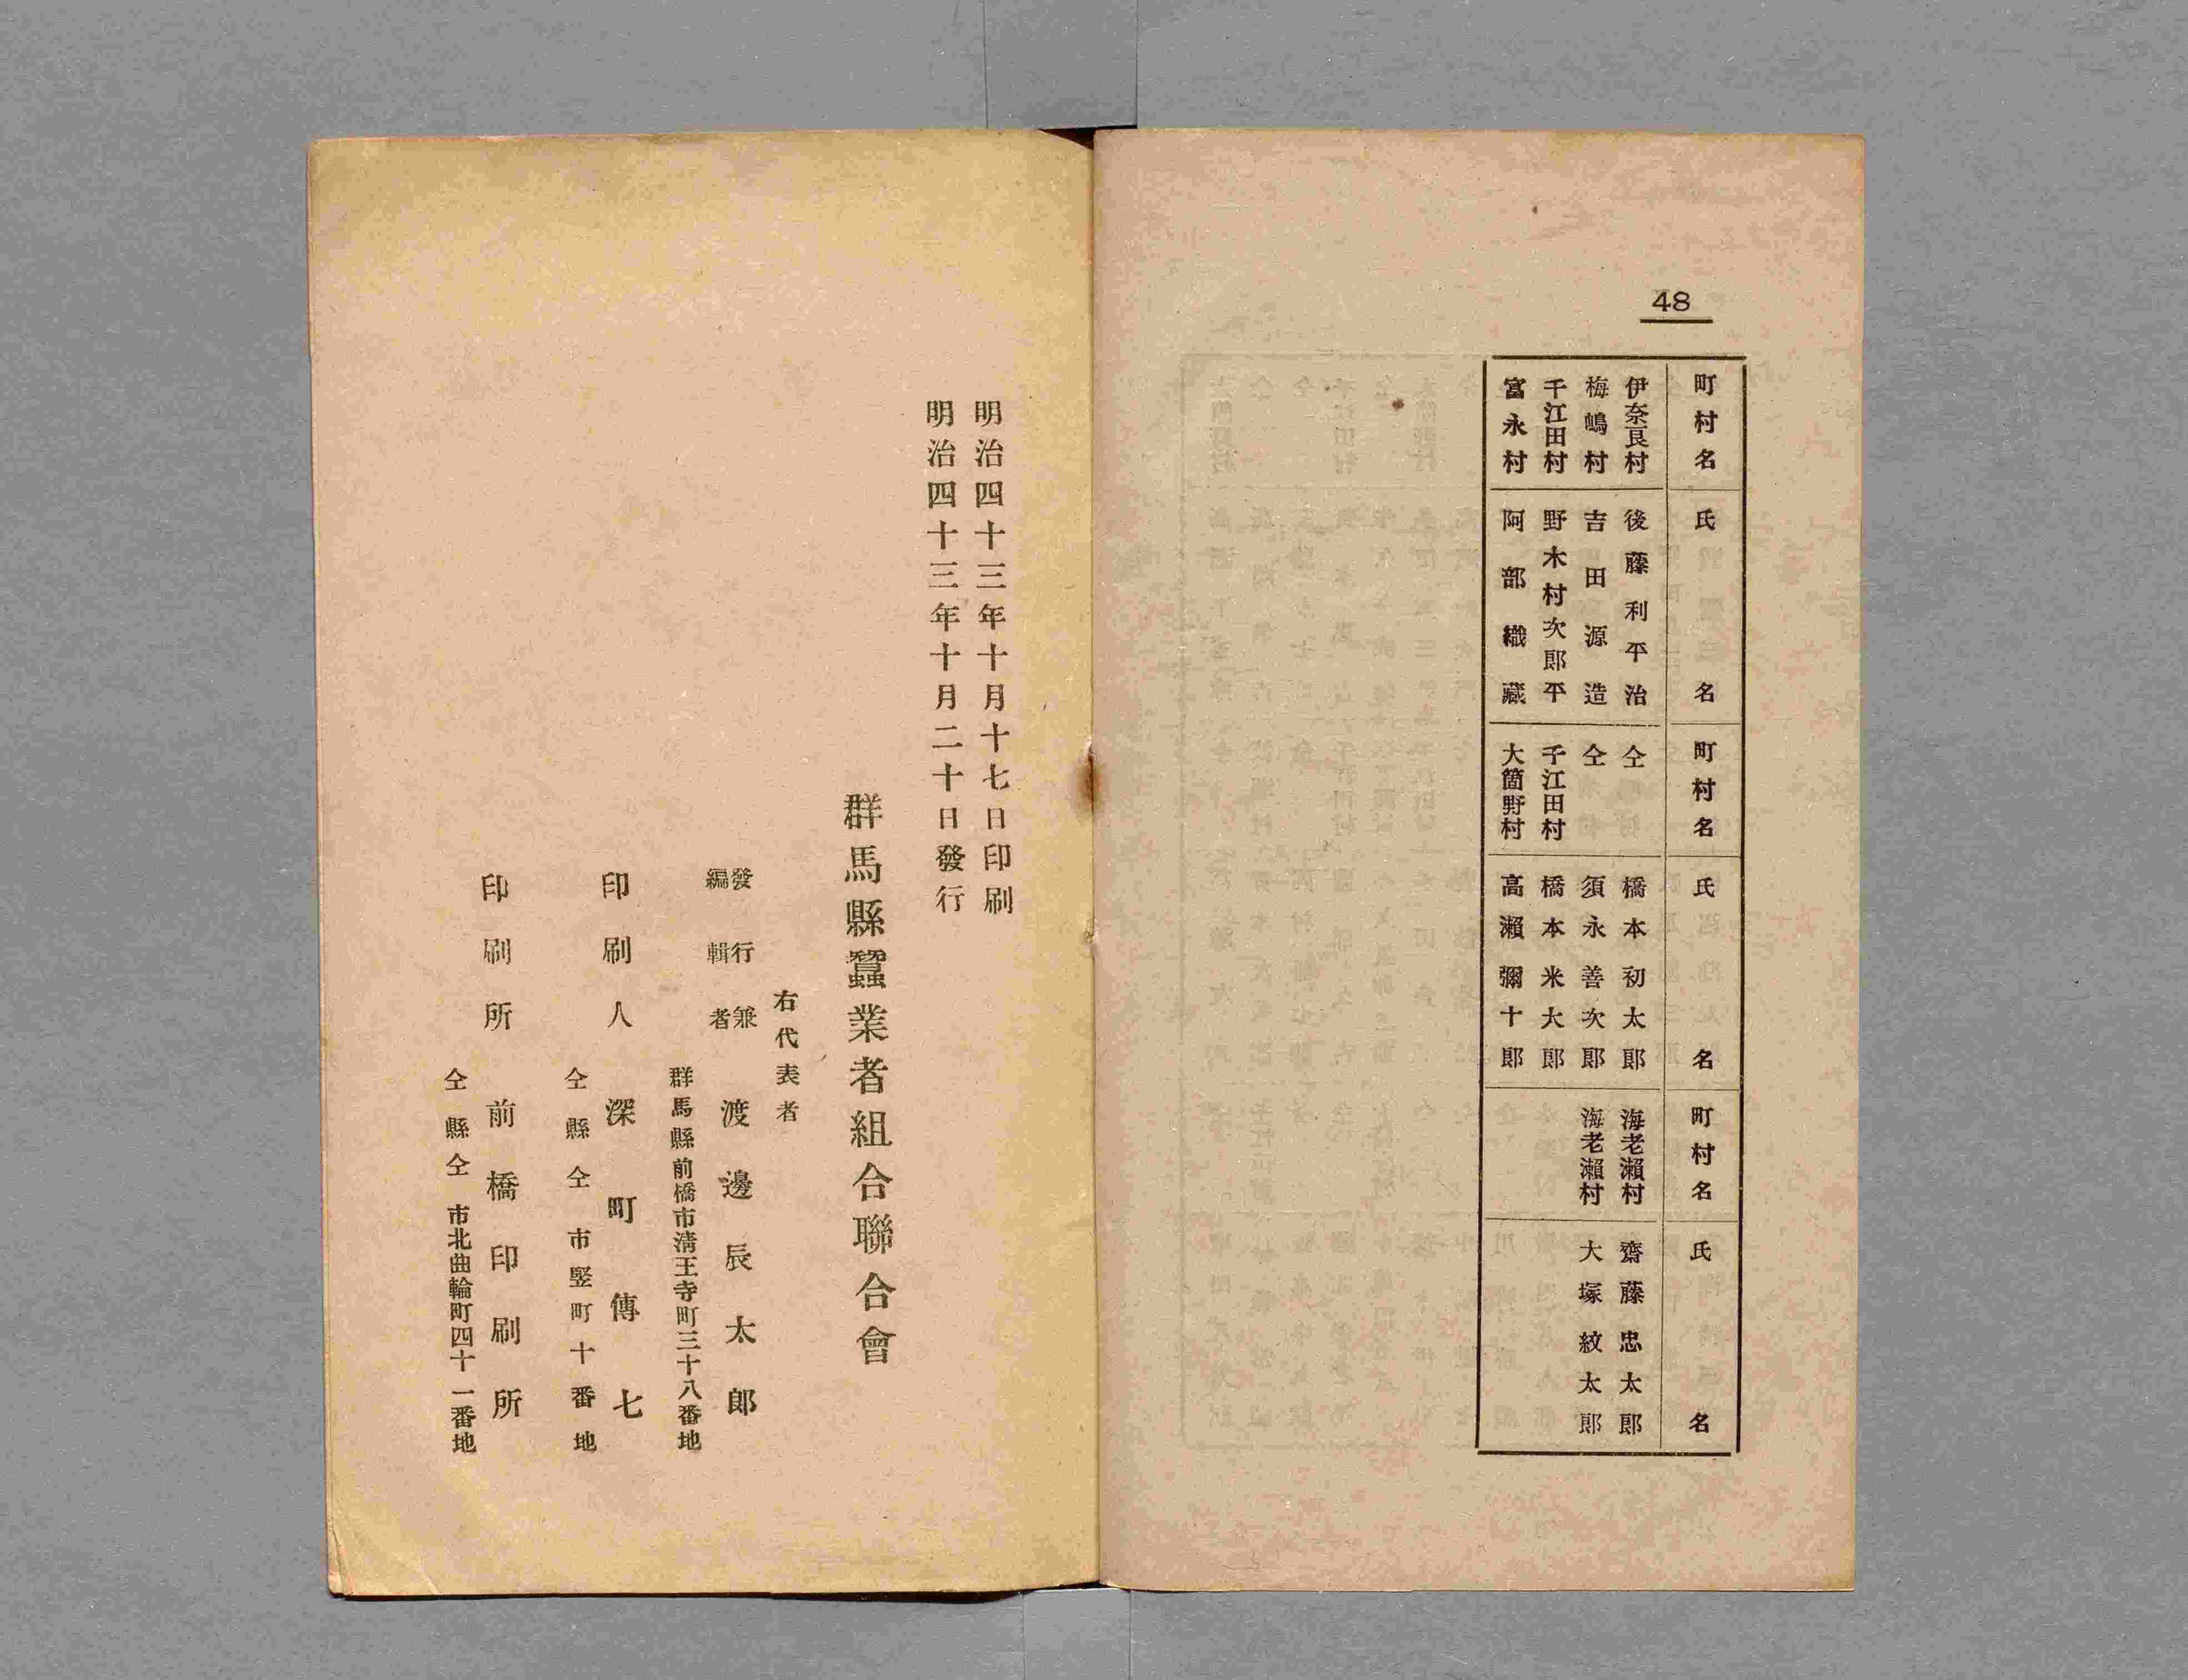 48
町村名 氏名 町村名 氏名 町村名 氏名
伊奈良村 後藤利平治 仝 橋本初太郎 海老瀬村 齋藤忠太郎
梅嶋村 吉田源造 仝 須永善次郎 海老瀬村 大塚紋太郎
千江田村 野木村次郎平 千江田村 橋本米大郎
富永村 阿部織藏 大箇野村 高瀬彌十郎
明治四十三年十月十七日印刷
明治四十三年十月二十日發行
群馬縣蠶業者組合聯合會
右代表者
發行兼編輯者 渡邊辰太郎
群馬縣前橋市清王寺町三十八番地
印刷人 深町傳七
仝縣仝市竪町十番地
印刷所 前橋印刷所
仝縣仝市北曲輪町四十一番地